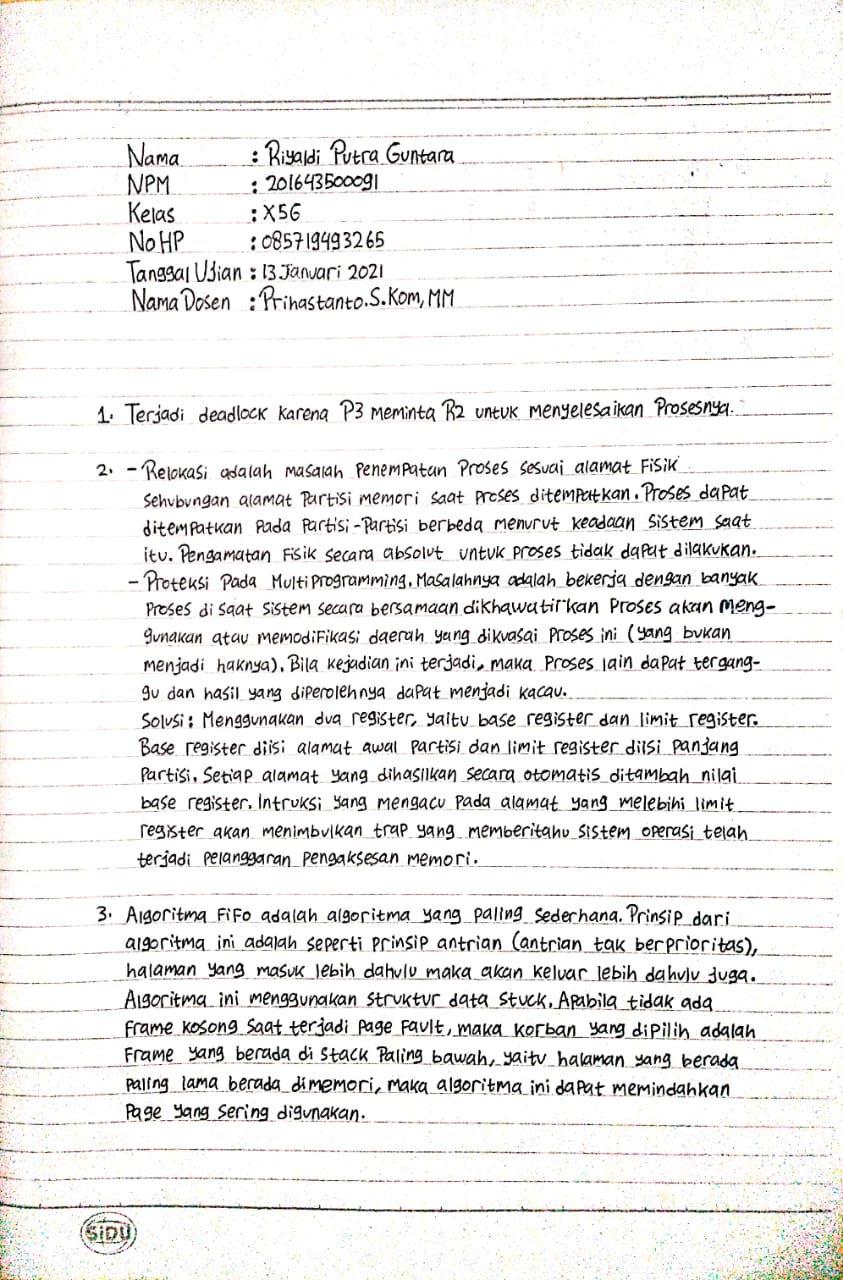 Nama : Riyaldi Putra Guntara
NPM : 201643500091
Kelas : X5G
No HP : 085719493265
Tanggal Ujian : 13 Januari 2021
Nama Dosen : Prihastanto.S.Kom, MM
1. Terjadi deadlock karena P3 meminta R2 untuk menyelesaikan Prosesnya.
2. - Relokasi adalah masalah Penempatan Proses sesuai alamat Fisik
sehubungan alamat Partisi memori saat Proses ditempatkan. Proses dapat
ditempatkan Pada Partisi-Partisi berbeda menurut keadaan sistem saat
itu. Pengamatan Fisik secara absolut untuk Proses tidak dapat dilakukan.
- Proteksi Pada Multiprogramming. Masalahnya adalah bekerja dengan banyak
Proses di saat sistem secara bersamaan dikhawatirkan Proses akan meng-
gunakan atau memodifikasi daerah yang dikuasai Proses ini (yang bukan
menjadi haknya). Bila kejadian ini terjadi, maka Proses lain dapat tergang-
gu dan hasil yang diperolehnya dapat menjadi kacau.
Solusi : Menggunakan dua register, yaitu base register dan limit register.
Base register diisi alamat awal Partisi dan limit register diisi Panjang
Partisi. Setiap alamat yang dihasilkan secara otomatis ditambah nilai
base register. Intruksi yang mengacu Pada alamat yang melebihi limit
register akan menimbulkan trap yang memberitahu sistem operasi telah
terjadi Pelanggaran Pengaksesan memori.
3. Algoritma FiFo adalah algoritma yang Paling sederhana. Prinsip dari
algoritma ini adalah seperti Prinsip antrian (antrian tak berprioritas),
halaman yang masuk lebih dahulu maka akan keluar lebih dahulu juga.
Algoritma ini menggunakan struktur data stuck. Apabila tidak ada
Frame kosong saat terjadi Page Fault, maka korban yang dipilih adalah
Frame yang berada di stack Paling bawah, yaitu halaman yang berada
Paling lama berada dimemori, maka algoritma ini dapat memindahkan
Page yang sering digunakan.
SiDU